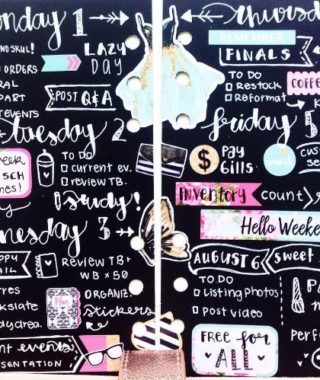 onday 1
NO SKUL!
LAZY
DAY
ORDERS
PART
EVENTS
POST Q&A
tuesday 2
TO DO
current ev.
review TB.
Study!
nesday 3
REVIEW TB+
WB x50
ORGANIZ.
stickers
Plan
daydrea
events
SENTATION
Thursd
REMEMBER
FINALS
TO DO
Restock
Reformat
COFFE
friday 5
$
PAY
bills.
inventory count
Hello Weeke
AUGUST 6
sweet
TO DO
Listing photos
Post video
FREE for
ALL